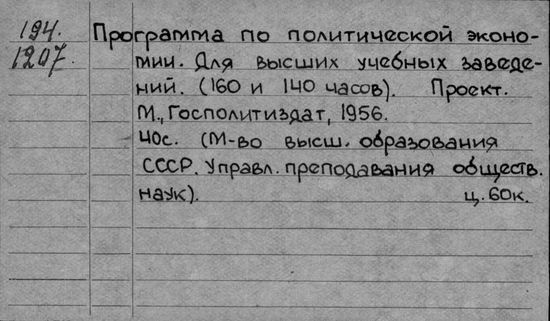 194.
1207.
Программа по политической эконо-
мии. Для высших учебных заведе-
ний. (160 и 140 часов). Проект.
М., Госполитиздат, 1956.
40с. (М-во высш. образования
СССР. Управл. преподавания обществ.
наук). ц. 60к.